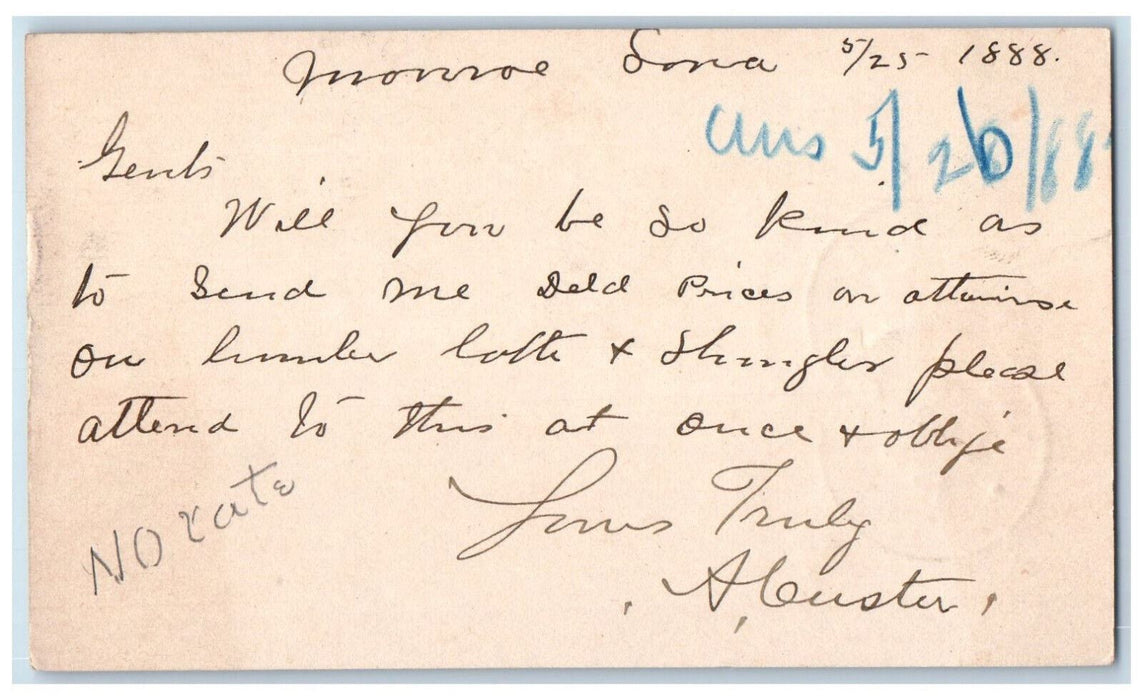 Monroe Iowa 5/25 1888.
Ans 5/26/88
Gents
Will you be so kind as
to send me Deld Prices or otherwise
on lumber lath & Shingles please
attend to this at once & oblige
Yours Truly
A Custer
NO rate